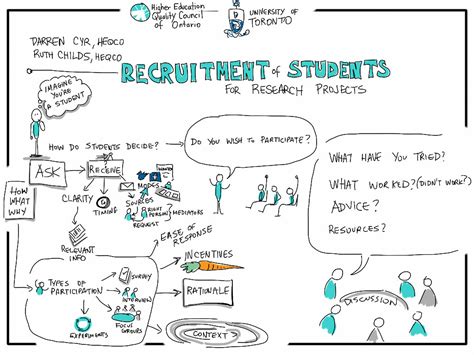 Higher Education
Quality Council
of Ontario
UNIVERSITY OF
TORONTO
DARREN CYR, HEQCO
RUTH CHILDS, HEQCO
RECRUITMENT of STUDENTS
FOR RESEARCH PROJECTS
IMAGINE
YOU'RE
A STUDENT
HOW DO STUDENTS DECIDE?
DO YOU WISH TO PARTICIPATE?
ASK
RECEIVE
HOW
WHAT
WHY
CLARITY
TIMING
MODES
SOURCES
RIGHT
PERSON
REQUEST
MEDIATORS
RELEVANT
INFO
EASE OF
RESPONSE
TYPES OF
PARTICIPATION
SURVEY
INTERVIEW
FOCUS
GROUPS
EXPERIMENTS
INCENTIVES
RATIONALE
CONTEXT
WHAT HAVE YOU TRIED?
WHAT WORKED? (DIDN'T WORK?)
ADVICE?
RESOURCES?
DISCUSSION